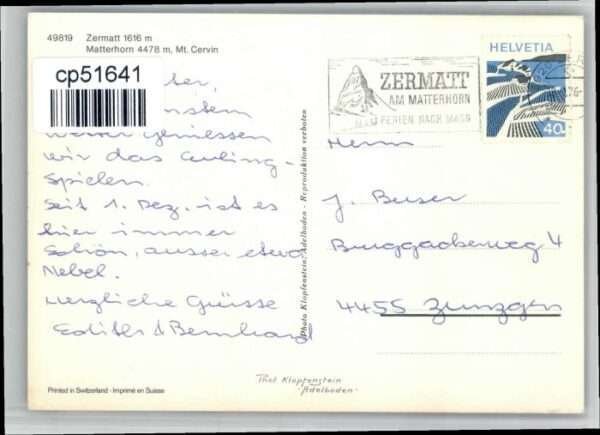 49819 Zermatt 1616 m
Matterhorn 4478 m, Mt. Cervin
cp51641
wir das Curling-
Spielen.
Seit 1. Dez. ist es
hier immer
schön, ausser etwas
Nebel.
Herzliche Grüsse
Edith & Bernhard
Printed in Switzerland - Imprimé en Suisse
Photo Klopfenstein, Adelboden - Reproduktion verboten
Phot Klopfenstein
Adelboden
ZERMATT
AM MATTERHORN
FERIEN NACH MASS
HELVETIA
40
Herrn
J. Buser
4455 Zunzgen